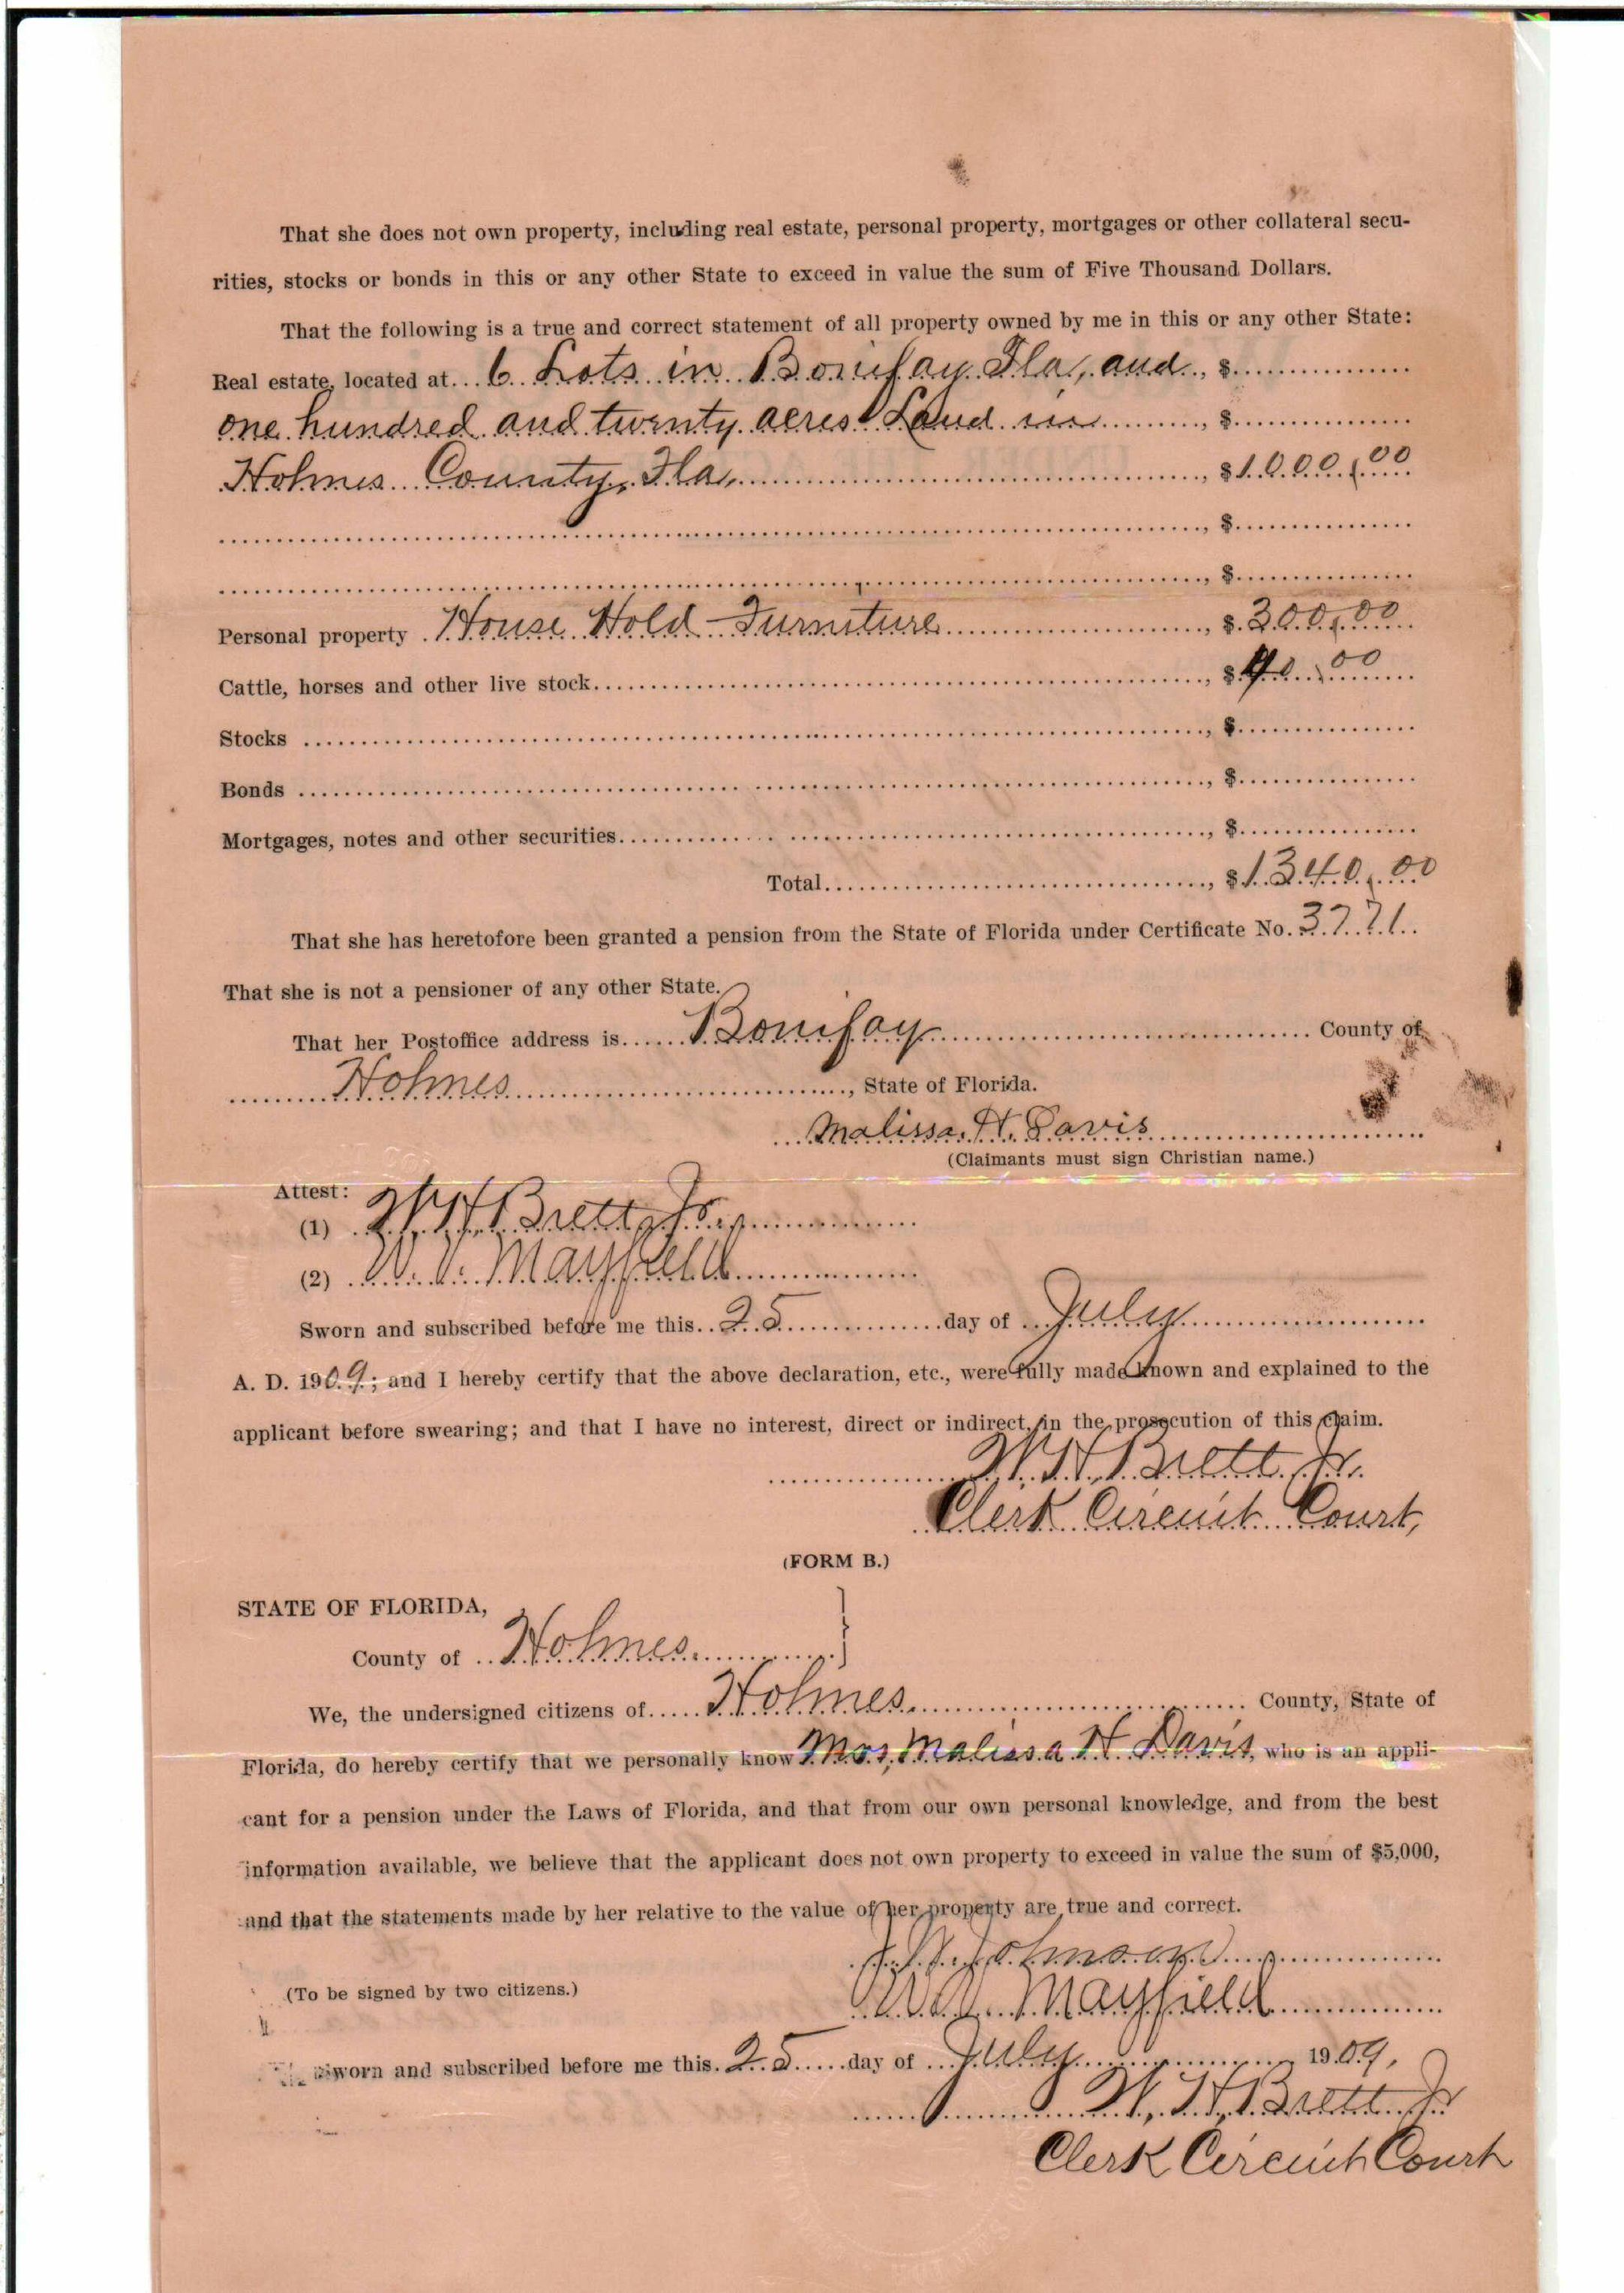 That she does not own property, including real estate, personal property, mortgages or other collateral secu-
rities, stocks or bonds in this or any other State to exceed in value the sum of Five Thousand Dollars.
That the following is a true and correct statement of all property owned by me in this or any other State:
Real estate, located at...6 Lots in Bonifay Fla, and., $
one hundred and twenty acres Land in, $
Holmes County, Fla, $1000.00
, $
, $
Personal property House Hold Furniture, $300.00
Cattle, horses and other live stock, $40.00
Stocks, $
Bonds, $
Mortgages, notes and other securities, $
Total, $1340.00
That she has heretofore been granted a pension from the State of Florida under Certificate No. 3771.
That she is not a pensioner of any other State.
That her Postoffice address is Bonifay County of
Holmes, State of Florida.
Malissa. H. Davis
(Claimants must sign Christian name.)
Attest:
(1) W. H. Brett Jr.,
(2) Mayfield
Sworn and subscribed before me this 25 day of July
A. D. 1909; and I hereby certify that the above declaration, etc., were fully made known and explained to the
applicant before swearing; and that I have no interest, direct or indirect, in the prosecution of this claim.
W. H. Brett Jr.
Clerk Circuit Court,
(FORM B.)
STATE OF FLORIDA,
County of Holmes
We, the undersigned citizens of Holmes County, State of
Florida, do hereby certify that we personally know Mrs, Malissa H. Davis, who is an appli-
cant for a pension under the Laws of Florida, and that from our own personal knowledge, and from the best
information available, we believe that the applicant does not own property to exceed in value the sum of $5,000,
and that the statements made by her relative to the value of her property are true and correct.
Johnson
(To be signed by two citizens.)
Mayfield
Sworn and subscribed before me this 25 day of July 1909,
W. H. Brett Jr
Clerk Circuit Court